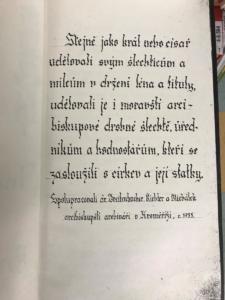 Stejně jako král nebo císař
udělovali svým šlechticům a
milcům v držení léna a tituly,
udělovali je i moravští arci-
biskupové drobné šlechtě, úřed-
níkům a hodnostářům, kteří se
zasloužili o církev a její statky.
archibiskupští archiváři v Kroměříži,